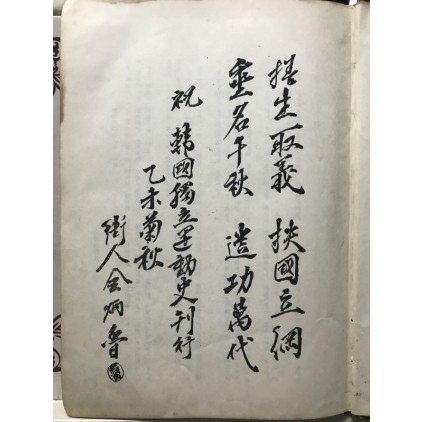 捨生取義 扶國立綱
垂名千秋 遺功萬代
祝 韓國獨立運動史刊行
乙未蘭秋
街人金炳魯